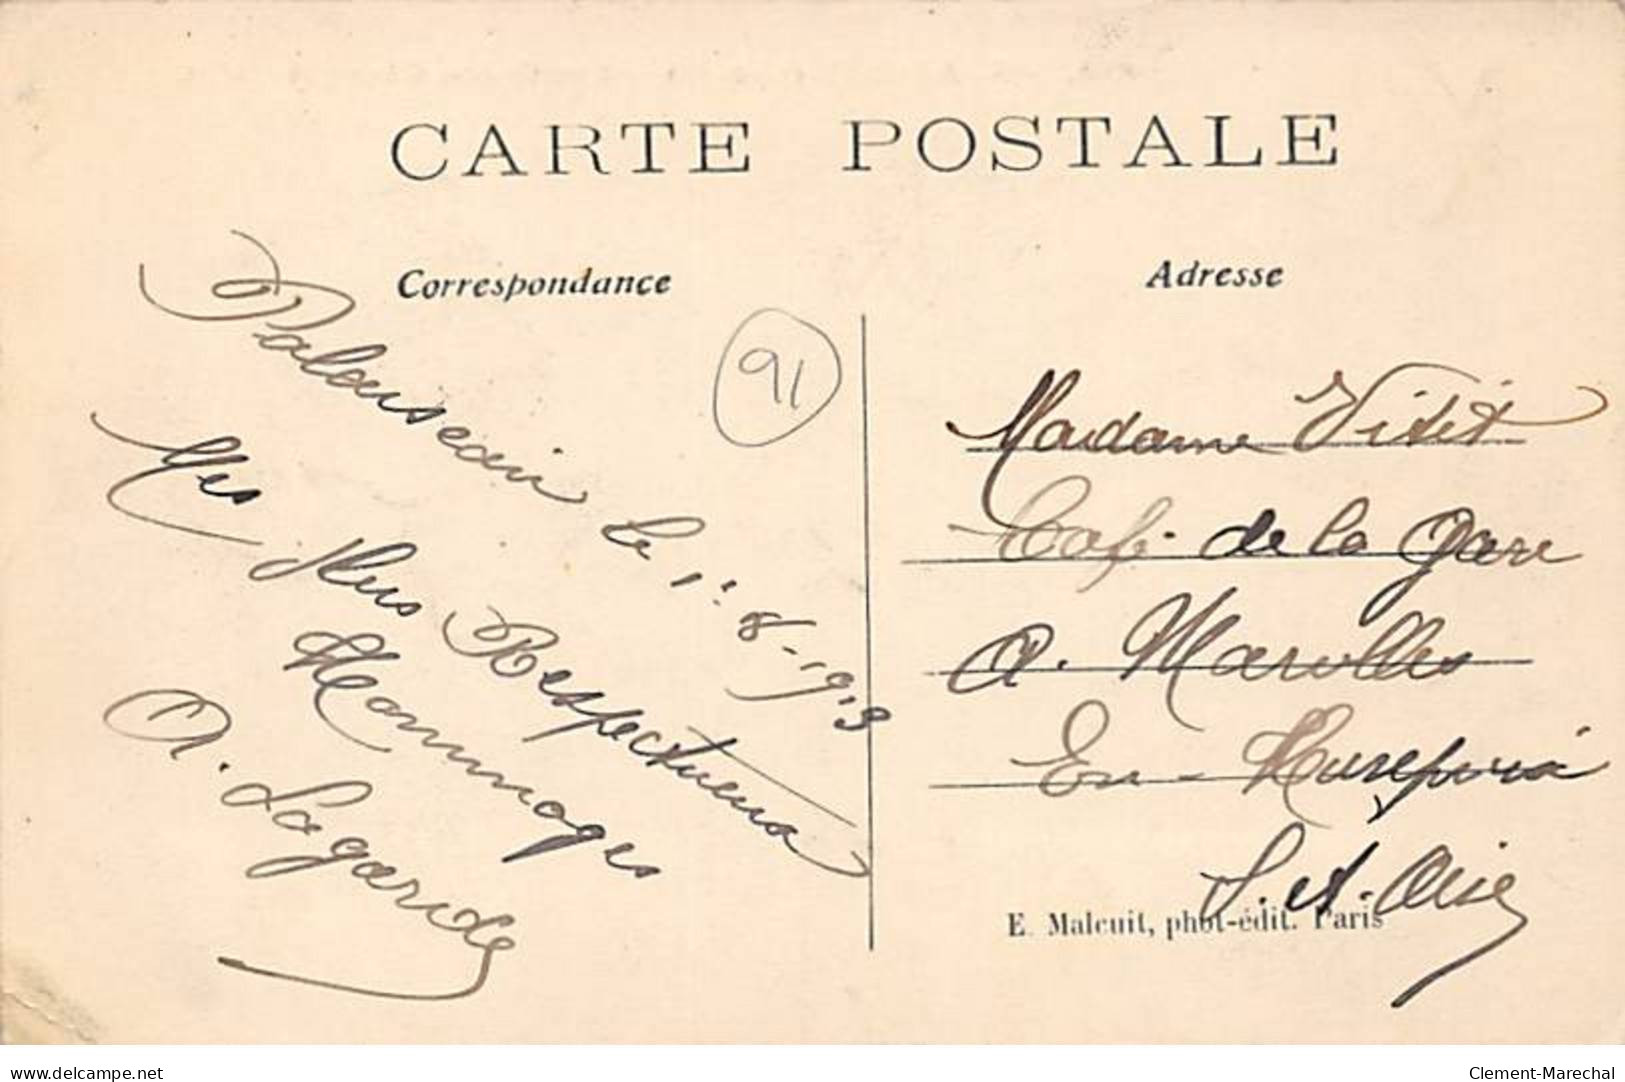 CARTE POSTALE
Correspondance
Adresse
91
Palaiseau le 1r 8-1913
Mes plus Respectueux
Hommages
A. Lagarde
Madame Vitet
Café de la Gare
A. Marolles
En Hurepoix
S. et Oise
E. Malcuit, phot-édit. Paris
delcampe.net
Clement-Marechal